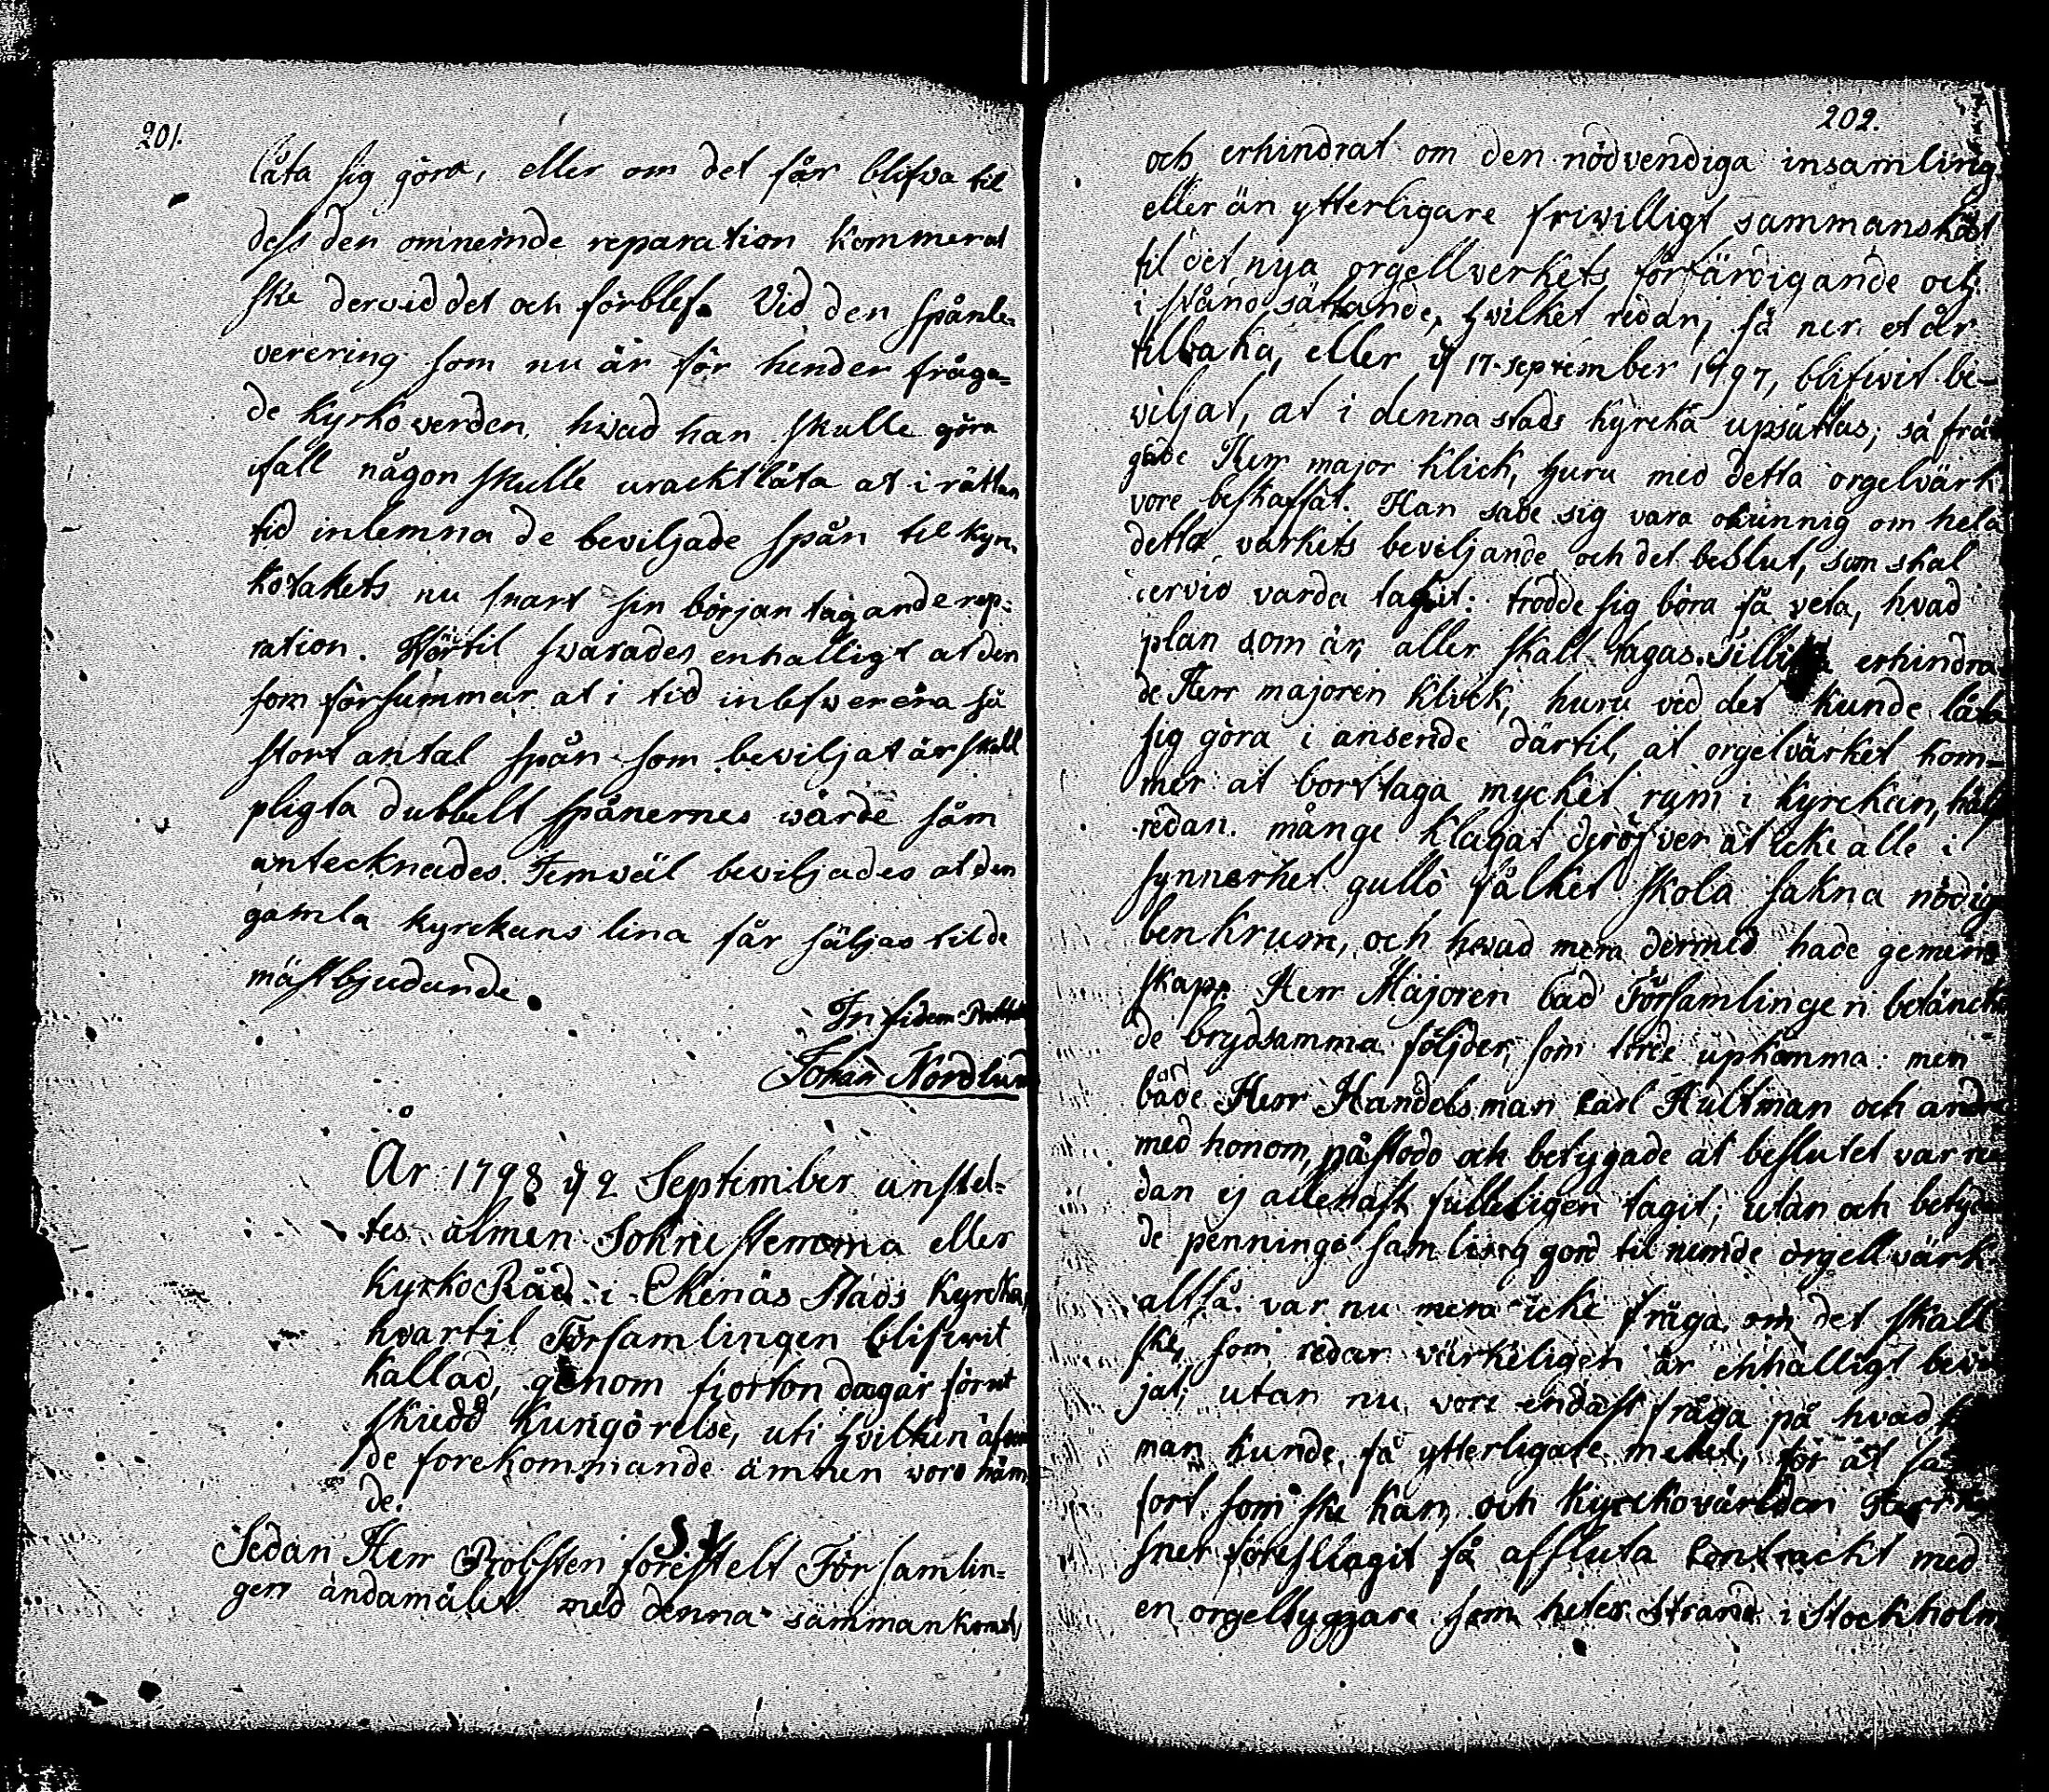 201.
låta sig göra, eller om det får blifva til
dess den omnemde reparation kommer at
ske derwid det och förblef. Vid den spånle-
verering som nu är för hender fråga-
de kyrkoverden, hwad han skulle göra
ifall någon skulle uracktlåta at i rättan
tid inlemna de beviljade spån til kyr-
kotakets nu snart sin början tagande rep-
ration. Härtil swarades enhalligt at den
som försummar at i tid inlefwerera så
stort antal spån som beviljat är skall
pligta dubbelt spånernes wärde såm
antecknades. Jemwäl beviljades at den
gamla kyrckans lina får säljas til de
mästbjudande.
In fidem
Johan Nordlund
År 1798 d 2 September anstel-
tes almen Sokne stemma eller
KyrkoRåd i Ekenäs Stads Kyrcka,
hvartil Församlingen blifwit
kallad, genom fjorton dagar förut
skiedd kungörelse, uti hvilken äfven
de forekommande ämnen voro näm-
de.
S 1
Sedan Herr Probsten förestelt Församlin-
gen ändamålet med denna sammankomst,
202.
och erhindrat om den nödvendiga insamling,
eller än ytterligare friwilligt sammanskåt
til det nya orgellverkets förfärdigande och
i stånd sättande, hwilket redan, så ner et år
tillbaka, eller d 17 september 1797, blifwit be-
viljat, at i denna stads kyrcka upsättas; så frå-
gade Herr major Klick, huru med detta orgelvärk
vore beskaffat. Han sade sig vara okunnig om hela
detta värkets beviljande och det beslut, som skal
dervid varda tagit: trodde sig böra få veta, hvad
plan som är, aller skall tagas. erhindra-
de Herr majoren Klick, huru ved det kunde låta
sig göra i ansende därtil, at orgelvärket kom-
mer at borttaga mycket rum i kyrckan, hälst
redan månge klagat deröfver at icke alle i
synnerhet gullö fålket skola sakna nödig
benkrum, och hwad mera dermed hade gemen-
skap. Herr Majoren bad Församlingen betänckia
de brydsamma följder, som torde upkomma: men
både Herr Handelsman Carl Hultman och andre
med honom, påstodo och betygade at beslutet var re-
dan ej allenast fulleligen tagit; utan och betyden-
de penninge samling gord til nemde orgellvärk
alltså var nu mera icke fråga om det skall
ske, som redan värkeligen är enhälligt bevil-
jat; utan nu vore endast fråga på hvad
man kunde få ytterligare medel, för at så
fort som ske kan, och kyrckovärden Herr
sner föreslagit få afsluta Contrackt med
en orgelbyggare som heter Strand i Stockholm